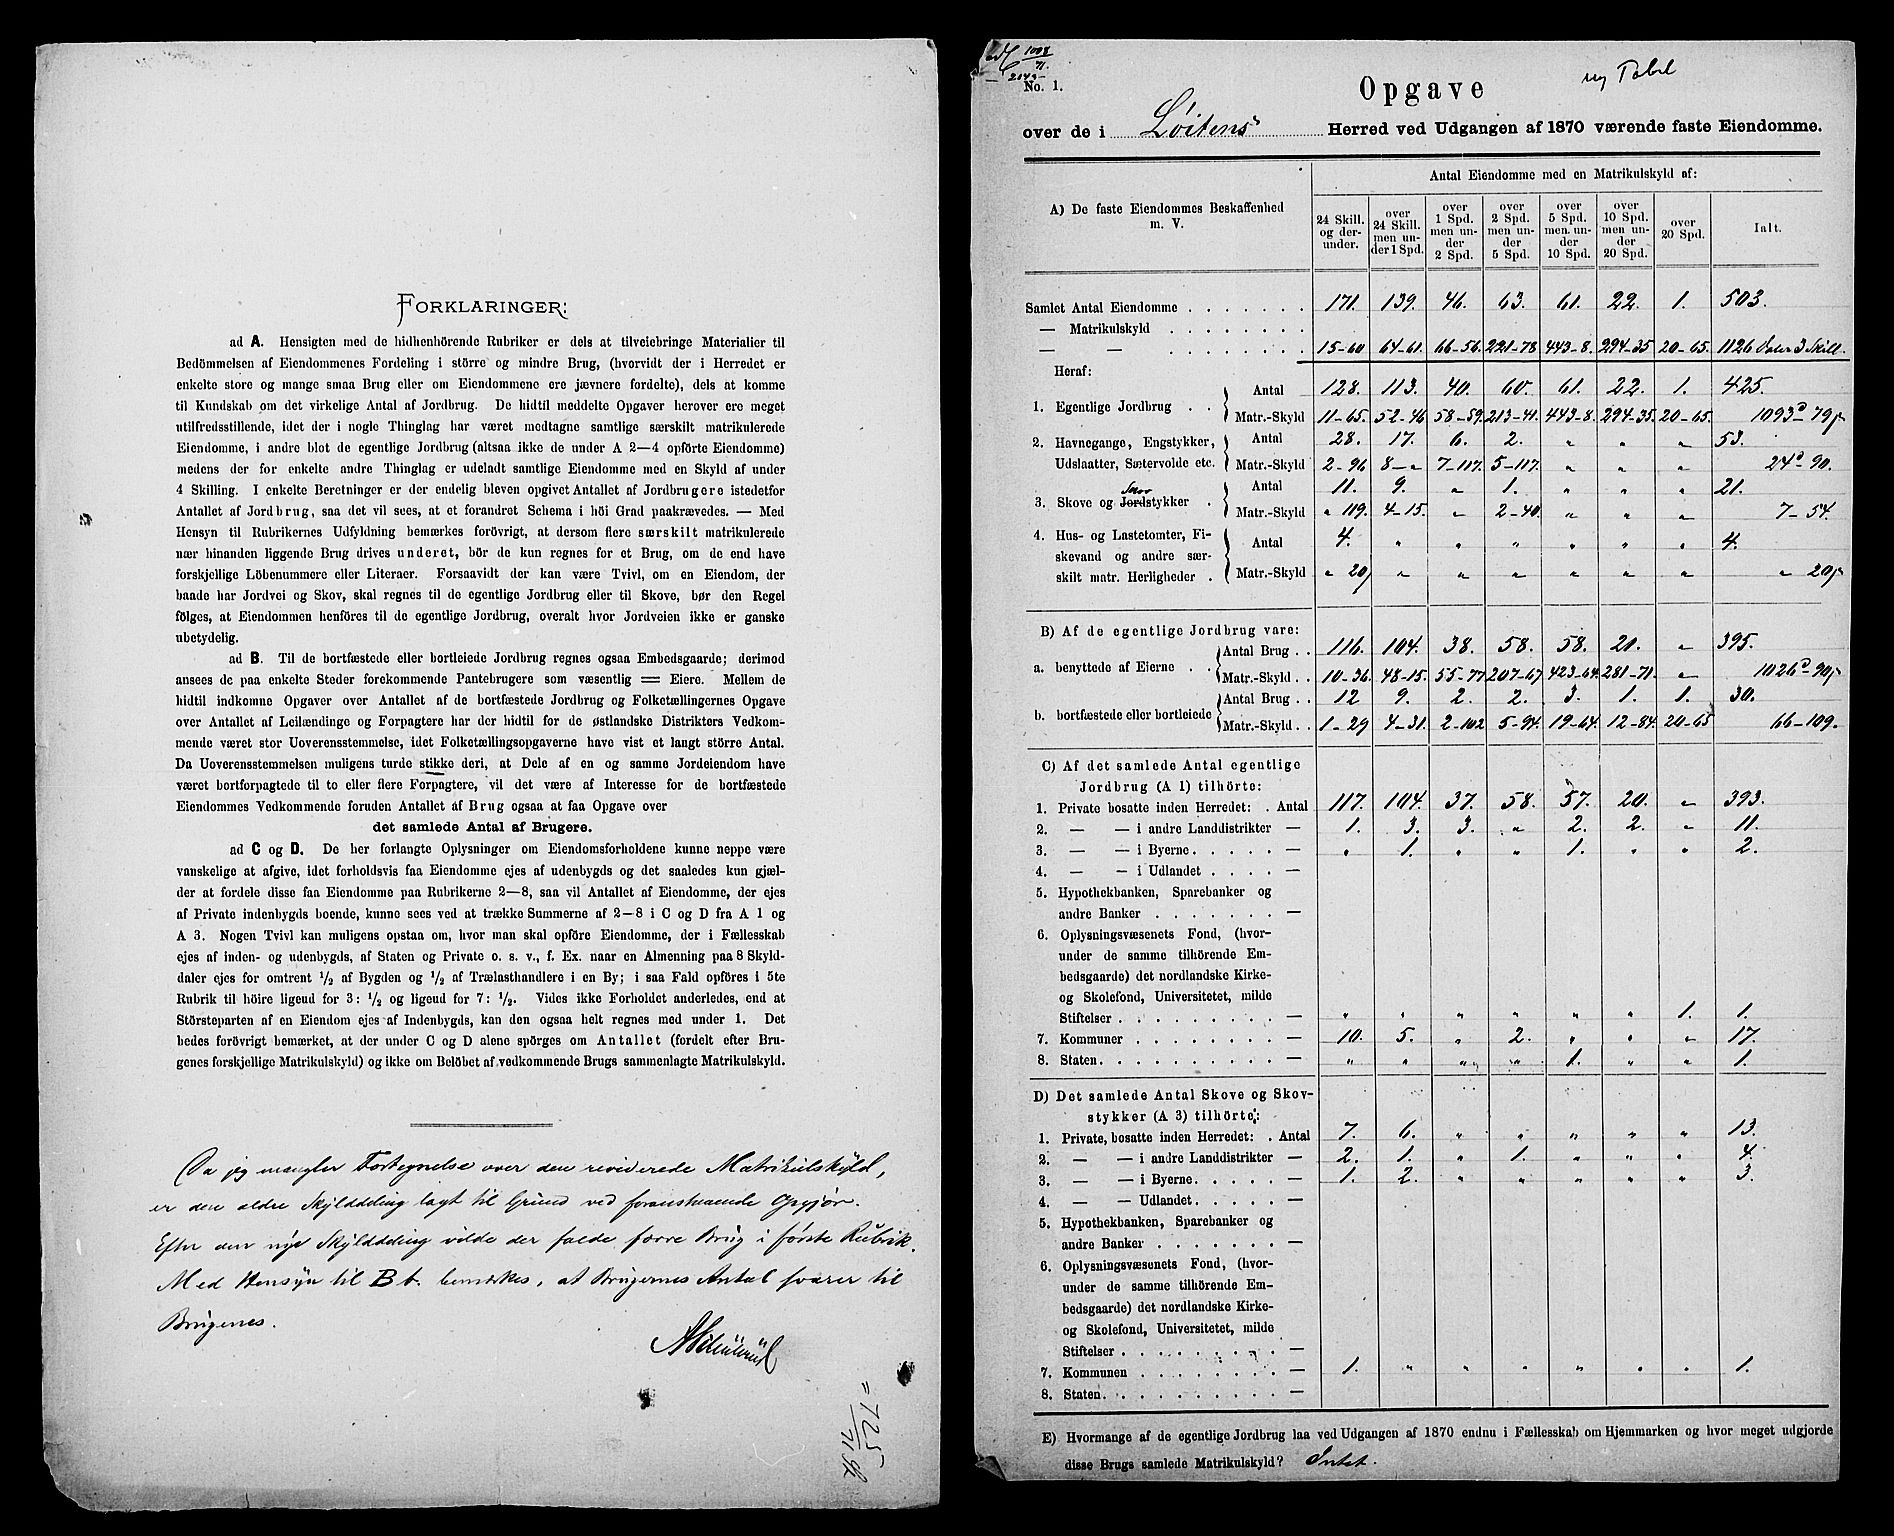 FORKLARINGER:
ad A. Hensigten med de hidhenhörende Rubriker er dels at tilveiebringe Materialier til
Bedömmelsen af Eiendommenes Fordeling i större og mindre Brug, (hvorvidt der i Herredet er
enkelte store og mange smaa Brug eller om Eiendommene ere jævnere fordelte), dels at komme
til Kundskab om det virkelige Antal af Jordbrug. De hidtil meddelte Opgaver herover ere meget
utilfredsstillende, idet der i nogle Thinglag har været medtagne samtlige særskilt matrikulerede
Eiendomme, i andre blot de egentlige Jordbrug (altsaa ikke de under A 2—4 opförte Eiendomme)
medens der for enkelte andre Thinglag er udeladt samtlige Eiendomme med en Skyld af under
4 Skilling. I enkelte Beretninger er der endelig bleven opgivet Antallet af Jordbrugere istedetfor
Antallet af Jordbrug, saa det vil sees, at et forandret Schema i höi Grad paakrævedes. — Med
Hensyn til Rubrikernes Udfyldning bemærkes forövrigt, at dersom flere særskilt matrikulerede
nær hinanden liggende Brug drives underet, bör de kun regnes for et Brug, om de end have
forskjellige Löbenummere eller Literaer. Forsaavidt der kan være Tvivl, om en Eiendom, der
baade har Jordvei og Skov, skal regnes til de egentlige Jordbrug eller til Skove, bør den Regel
fölges, at Eiendommen henföres til de egentlige Jordbrug, overalt hvor Jordveien ikke er ganske
ubetydelig.
ad B. Til de bortfæstede eller bortleiede Jordbrug regnes ogsaa Embedsgaarde; derimod
ansees de paa enkelte Steder forekommende Pantebrugere som væsentlig = Eiere. Mellem de
hidtil indkomne Opgaver over Antallet af de bortfæstede Jordbrug og Folketællingernes Opgave
over Antallet af Leilændinge og Forpagtere har der hidtil for de østlandske Distrikters Vedkom-
mende været stor Uoverensstemmelse, idet Folketællingsopgaverne have vist et langt större Antal.
Da Uoverensstemmelsen muligens turde stikke deri, at Dele af en og samme Jordeiendom have
været bortforpagtede til to eller flere Forpagtere, vil det være af Interesse for de bortfæstede
Eiendommes Vedkommende foruden Antallet af Brug ogsaa at faa Opgave over
det samlede Antal af Brugere.
ad C og D. De her forlangte Oplysninger om Eiendomsforholdene kunne neppe være
vanskelige at afgive, idet forholdsvis faa Eiendomme ejes af udenbygds og det saaledes kun gjæl-
der at fordele disse faa Eiendomme paa Rubrikerne 2—8, saa vil Antallet af Eiendomme, der ejes
af Private indenbygds boende, kunne sees ved at trække Summerne af 2—8 i C og D fra A 1 og
A 3. Nogen Tvivl kan muligens opstaa om, hvor man skal opföre Eiendomme, der i Fællesskab
ejes af inden- og udenbygds, af Staten og Private o. s. v., f. Ex. naar en Almenning paa 8 Skyld-
daler ejes for omtrent 1/2 af Bygden og 1/2 af Trælasthandlere i en By; i saa Fald opföres i 5te
Rubrik til höire ligeud for 3: 1/2 og ligeud for 7: 1/2. Vides ikke Forholdet anderledes, end at
Störsteparten af en Eiendom ejes af Indenbygds, kan den ogsaa helt regnes med under 1. Det
bedes forövrigt bemærket, at der under C og D alene spörges om Antallet (fordelt efter Bru-
genes forskjellige Matrikulskyld) og ikke om Belöbet af vedkommende Brugs sammenlagte Matrikulskyld.
Da jeg mangler Fortegnelse over den reviderede Matrikulskyld,
er den ældre Skylddeling lagt til Grund ved foranstaaende Opgjör.
Efter den nye Skylddeling vilde der falde færre Brug i første Rubrik.
Med Hensyn til B b. bemærkes, at Brugernes Antal svarer til
Brugenes.
= 725
71
1008
71.
2143
No. 1.
Opgave
ny Tabel
over de i Löitens Herred ved Udgangen af 1870 værende faste Eiendomme.
A) De faste Eiendommes Beskaffenhed m. V.
Antal Eiendomme med en Matrikulskyld af:
24 Skill. og der- under. | over 24 Skill. men un- der 1 Spd. | over 1 Spd. men un- der 2 Spd. | over 2 Spd. men un- der 5 Spd. | over 5 Spd. men un- der 10 Spd. | over 10 Spd. men un- der 20 Spd. | over 20 Spd. | Ialt.
Samlet Antal Eiendomme . . . . . . . 171. 139. 46. 63. 61. 22. 1. 503.
— Matrikulskyld . . . . . . . .
— — . . . . . . . . 15-60 64-61. 66-56. 221-78 443-8. 294-35 20-65. 1126 Daler 3 Skill.
Heraf:
1. Egentlige Jordbrug . . Antal 128. 113. 40. 60. 61. 22. 1. 425.
Matr.-Skyld 11-65. 52-46 58-59. 213-41. 443-8. 294-35. 20-65. 1093 D 79
2. Havnegange, Engstykker, Antal 28. 17. 6. 2. „ „ „ 53.
Udslaatter, Sætervolde etc. Matr.-Skyld 2-96 8-„ 7-117. 5-117. „ „ „ 24 D 90.
3. Skove og Jordstykker . Skov Antal 11. 9. „ 1. „ „ „ 21.
Matr.-Skyld „ 119. 4-15. „ 2-40. „ „ „ 7-54.
4. Hus- og Lastetomter, Fi-
skevand og andre sær- Antal 4. „ „ „ „ „ „ 4.
skilt matr. Herligheder . Matr.-Skyld „ 20 „ „ „ „ „ „ „ 20
B) Af de egentlige Jordbrug vare:
a. benyttede af Eierne . . Antal Brug . . 116. 104. 38. 58. 58. 20. „ 395.
Matr.-Skyld . . 10-36. 48-15. 55-77 207-67 423-64. 281-71. „ 1026 D 90
b. bortfæstede eller bortleiede Antal Brug . . 12 9. 2. 2. 3. 1. 1. 30.
Matr.-Skyld . . 1-29 4-31. 2-102 5-94. 19-64. 12-84. 20-65 66-109.
C) Af det samlede Antal egentlige
Jordbrug (A 1) tilhörte:
1. Private bosatte inden Herredet: . Antal 117. 104. 37. 58. 57. 20. „ 393.
2. — — i andre Landdistrikter — 1. 3. 3. „ 2. 2. „ 11.
3. — — i Byerne . . . . . — „ 1. „ „ 1. „ „ 2.
4. — — i Udlandet . . . . —
5. Hypothekbanken, Sparebanker og
andre Banker . . . . . . . —
6. Oplysningsvæsenets Fond, (hvor-
under de samme tilhörende Em-
bedsgaarde) det nordlandske Kirke-
og Skolefond, Universitetet, milde
Stiftelser . . . . . . . . . — „ „ „ „ „ „ 1. 1.
7. Kommuner . . . . . . . . — 10. 5. „ 2. „ „ „ 17.
8. Staten . . . . . . . . . . — „ „ „ „ 1. „ „ 1.
D) Det samlede Antal Skove og Skov-
stykker (A 3) tilhörte:
1. Private, bosatte inden Herredet: . Antal 7. 6. „ „ „ „ „ 13.
2. — — i andre Landdistrikter — 2. 1. „ 1. „ „ „ 4.
3. — — i Byerne . . . . . — 1. 2. „ „ „ „ „ 3.
4. — — Udlandet . . . . . —
5. Hypothekbanken, Sparebanker og
andre Banker . . . . . . . —
6. Oplysningsvæsenets Fond, (hvor-
under de samme tilhörende Em-
bedsgaarde) det nordlandske Kirke-
og Skolefond, Universitetet, milde
Stiftelser . . . . . . . . . —
7. Kommunen . . . . . . . . — 1. „ „ „ „ „ „ 1.
8. Staten . . . . . . . . . . —
E) Hvormange af de egentlige Jordbrug laa ved Udgangen af 1870 endnu i Fællesskab om Hjemmarken og hvor meget udgjorde
disse Brugs samlede Matrikulskyld? Intet.